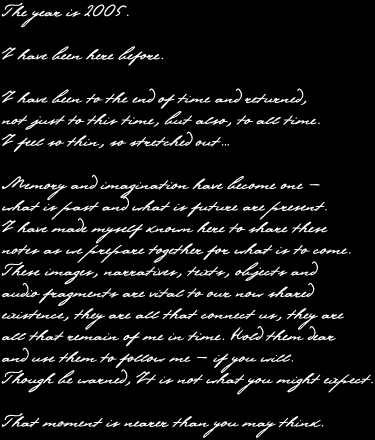 The year is 2005.
I have been here before.
I have been to the end of time and returned,
not just to this time, but also, to all time.
I feel so thin, so stretched out...
Memory and imagination have become one –
what is past and what is future are present.
I have made myself known here to share these
notes as we prepare together for what is to come.
These images, narratives, texts, objects and
audio fragments are vital to our now shared
existence, they are all that connect us, they are
all that remain of me in time. Hold them dear
and use them to follow me – if you will.
Though be warned, It is not what you might expect.
That moment is nearer than you may think.